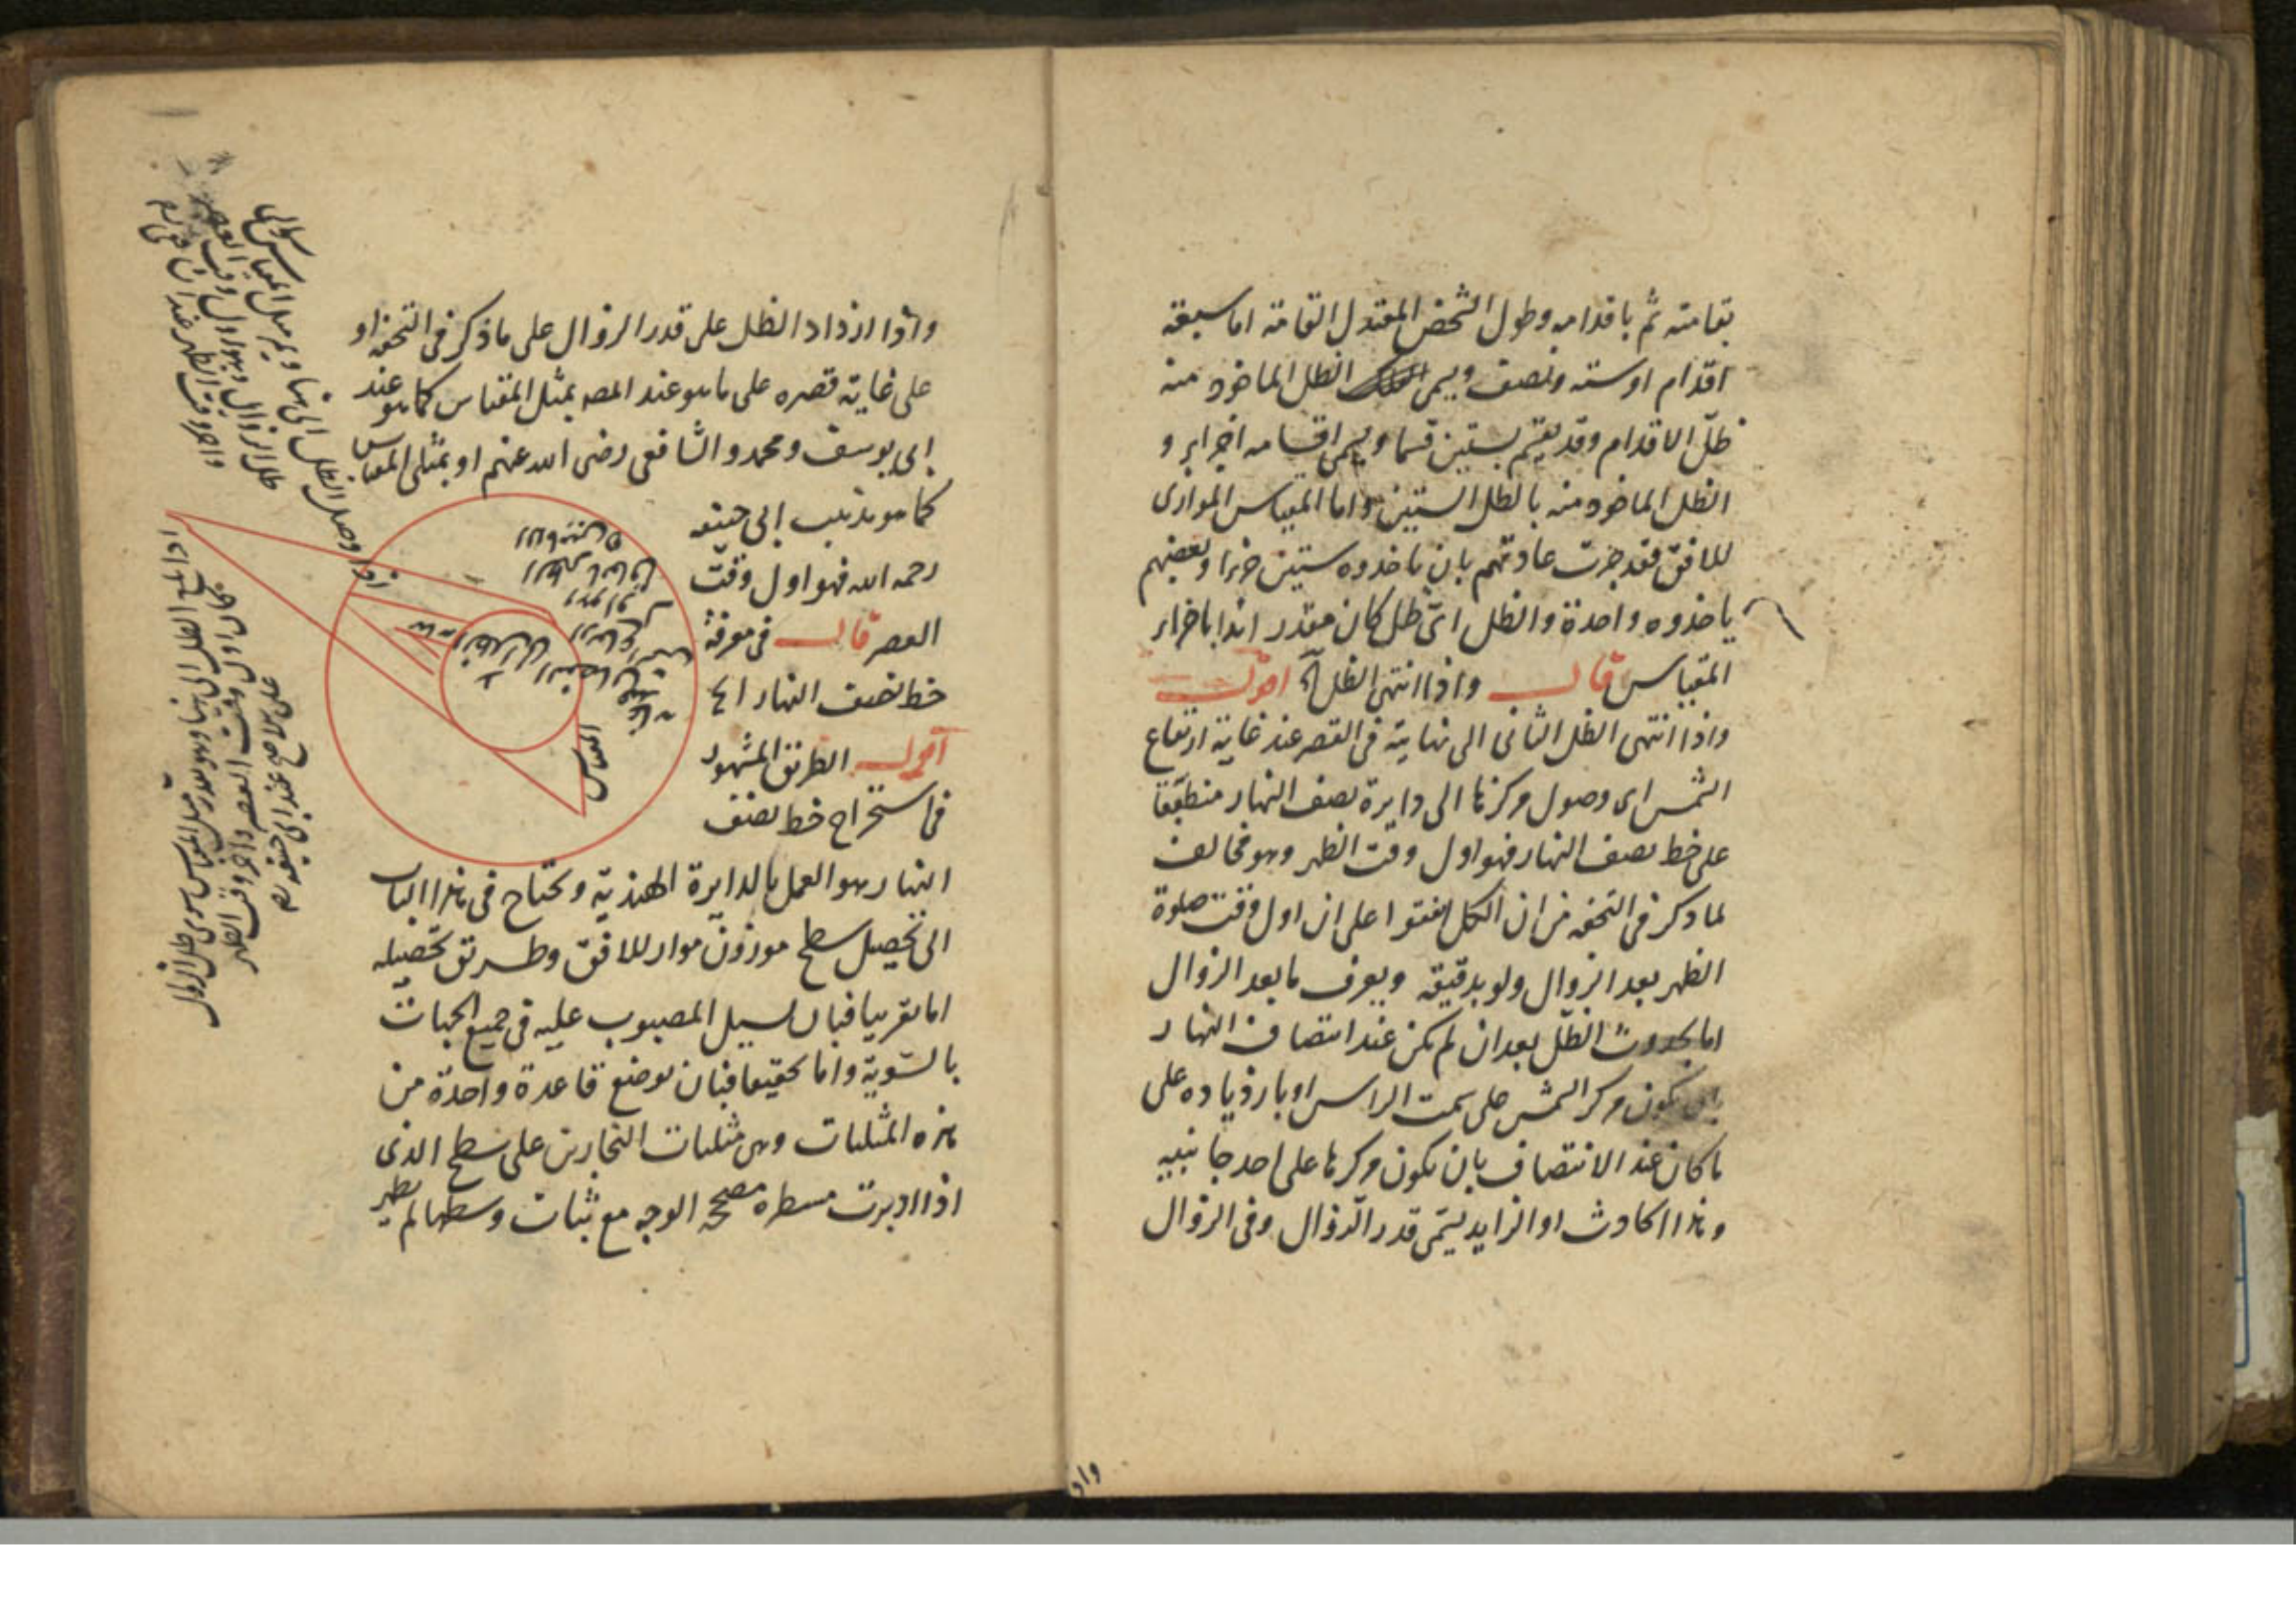 بقامته ثم باقدامه وطول الشخص المعتدل القامة اما سبعة
اقدام او ستة ونصف ويسمى الظل الماخوذ منه
ظل الاقدام وقد يقسم بستين قسما ويسمى اقسامه اجزاء و
الظل الماخوذ منه بالظل الستينى واما المقياس الموازى
للافق فقد جرت عادتهم بان ياخذوه ستين جزءا وبعضهم
ياخذوه واحدة والظل اى ظل كان مقدر ابدا باجزاء
المقياس قال واذا انتهى الظل آه اقول
واذا انتهى الظل الثانى الى نهايته فى القصر عند غاية ارتفاع
الشمس اى وصول مركزها الى دايرة نصف النهار منطبقا
على خط نصف النهار فهو اول وقت الظهر وهو مخالف
لما ذكر فى التحفه من ان الكل اتفقوا على ان اول وقت صلوة
الظهر بعد الزوال ولو بدقيقة ويعرف ما بعد الزوال
اما بحدوث الظل بعد ان لم يكن عند انتصاف النهار
بان يكون مركز الشمس على سمت الراس او بازدياده على
ما كان عند الانتصاف بان يكون مركزها على احد جانبيه
وهذا الحادث او الزايد يسمى قدر الزوال وفى الزوال
واذ
واذا ازداد الظل على قدر الزوال على ما ذكر فى التحفه او
على غاية قصره على ما هو عند المصه بمثل المقياس كما هو عند
ابى يوسف ومحمد والشافعى رضى الله عنهم او بمثلى المقياس
كما هو مذهب ابى حنيفه
رحمه الله فهو اول وقت
العصر قال فى معرفة
خط نصف النهار الخ
اقول الطريق المشهور
فى استخراج خط نصف
النهار هو العمل بالدايرة الهندية ونحتاج فى هذا الباب
الى تحصيل سطح موزون مواز للافق وطريق تحصيله
اما تقريبا فبان يسيل المصبوب عليه فى جميع الجهات
بالسوية واما تحقيقا فبان يوضع قاعدة واحدة من
هذه المثلثات وهى مثلثات النجارين على سطح الذى
اذا اديرت مسطرة مصححة الوجه مع ثبات وسطها لم يظهر
المقياس
اذا وصل الظل الى نهاية مثل المقياس سوى
ظل الزوال وهو اول وقت العصر
واخر وقت الظهر
اذا بلغ الظل الى نهاية مثل المقياس سوى ظل الزوال
كان اول وقت العصر واخر وقت الظهر
عند ابى حنيفه ره